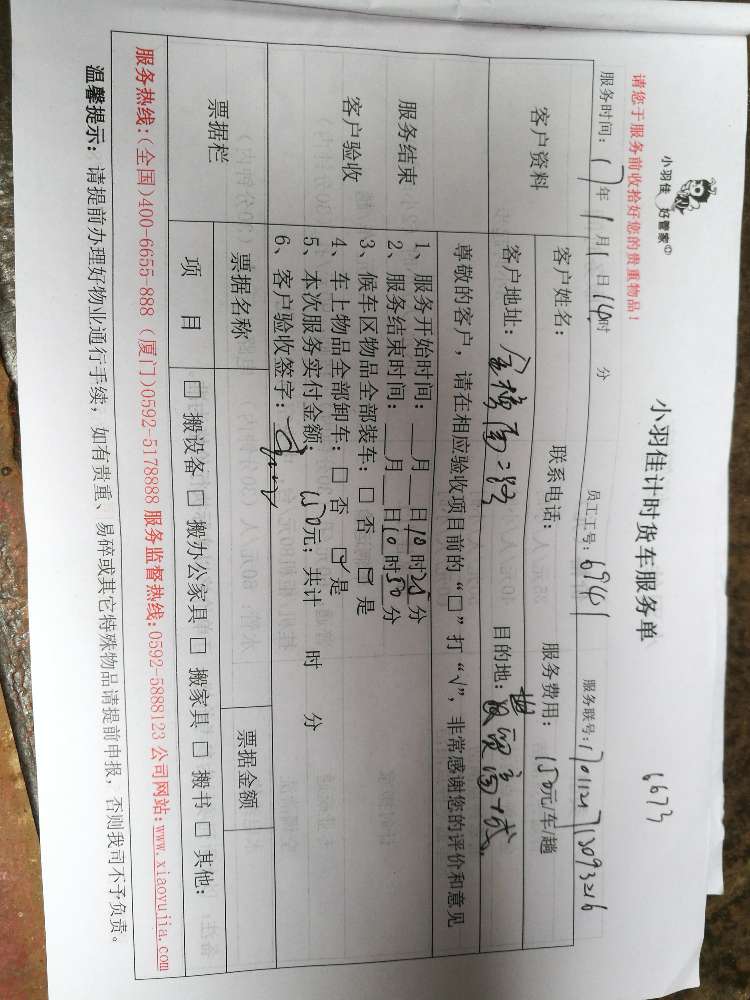 小羽佳 好管家
小羽佳计时货车服务单
6673
请您于服务前收拾好您的贵重物品!
服务时间: 17年 1月1日14时 分 员工工号: 69441 服务联号:
客户资料
客户姓名: 联系电话: 服务费用: 150元/车/趟
客户地址: 二路 目的地: 世贸商城
尊敬的客户，请在相应验收项目前的“□”打“√”，非常感谢您的评价和意见
服务结束
客户验收
1、服务开始时间: __月__日10时25分
2、服务结束时间: __月__日10时50分
3、候车区物品全部装车: □ 否 ☑ 是
4、车上物品全部卸车: □ 否 ☑ 是
5、本次服务实付金额: 150元; 共计 时 分
6、客户验收签字:
票据栏
票据名称 票据金额
项 目 □ 搬设备 □ 搬办公家具 □ 搬家具 □ 搬书 □ 其他:
服务热线:(全国)400-6655-888 (厦门)0592-5178888 服务监督热线:0592-5888123 公司网站:www.xiaoyujia.com
温馨提示: 请提前办理好物业通行手续，如有贵重、易碎或其它特殊物品请提前申报，否则我司不予负责。